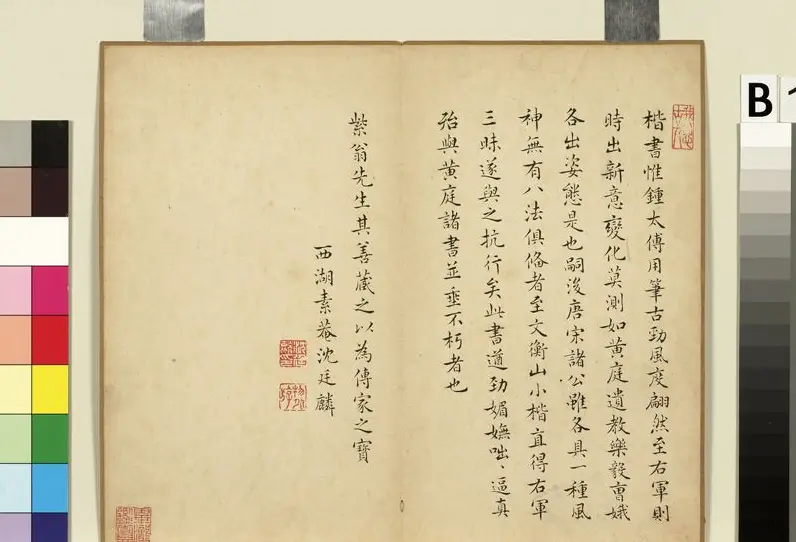 楷書惟鍾太傅用筆古勁風度翩然至右軍則
時出新意變化莫測如黄庭遺教樂毅曹娥
各出姿態是也嗣後唐宋諸公雖各具一種風
神無有八法俱備者至文衡山小楷直得右軍
三昧遂與之抗行矣此書遒勁媚嫵咄〻逼真
殆與黄庭諸書並垂不朽者也
紫翁先生其善藏之以為傳家之寶
西湖素菴沈廷麟
B